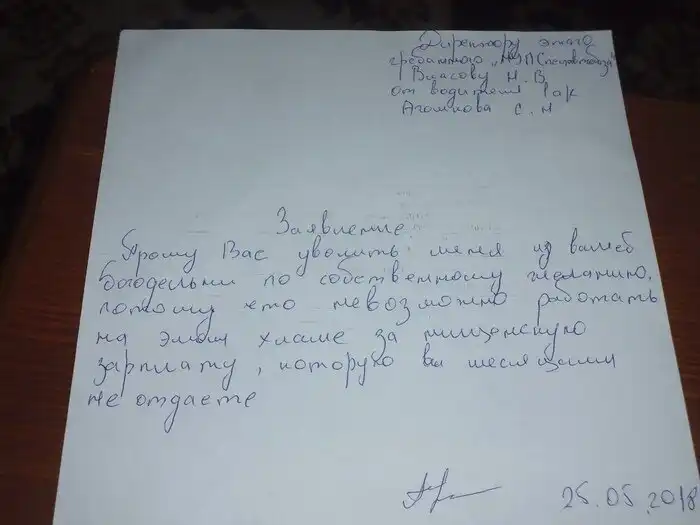 Директору этого
гребанного „МУП Спецавтобаза"
Власову Н. В.
от водителя 1 а/к
Агошкова С. Н
Заявление.
Прошу Вас уволить меня из вашей
богодельни по собственному желанию,
потому что невозможно работать
на этом хламе за нищенскую
зарплату, которую вы месяцами
не отдаете
25.05.2018